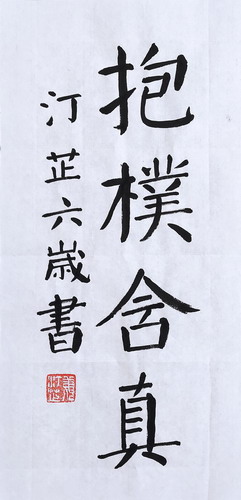 抱樸含真
汀芷六歲書